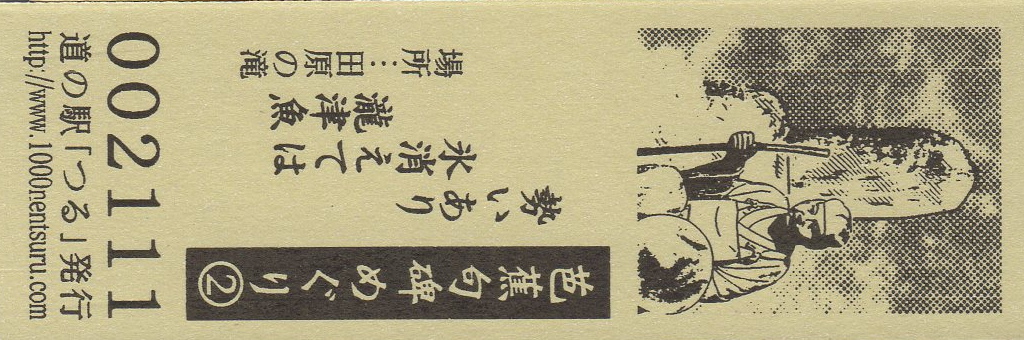 芭蕉句碑めぐり②
勢いあり
氷消えては
瀧津魚
場所：田原の滝
002111
道の駅「つる」発行
http://www.1000nentsuru.com